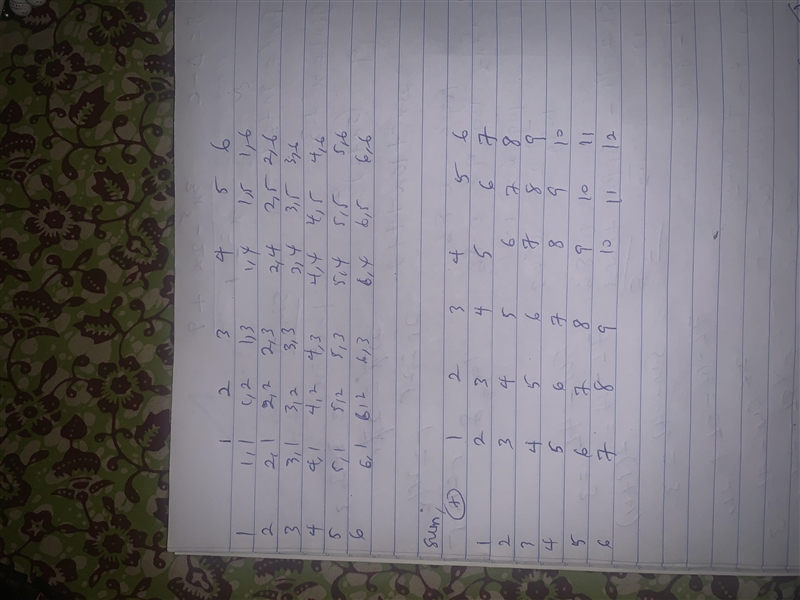 1 2 3 4 5 6
1 1,1 1,2 1,3 1,4 1,5 1,6
2 2,1 2,2 2,3 2,4 2,5 2,6
3 3,1 3,2 3,3 3,4 3,5 3,6
4 4,1 4,2 4,3 4,4 4,5 4,6
5 5,1 5,2 5,3 5,4 5,5 5,6
6 6,1 6,2 6,3 6,4 6,5 6,6
Sum,
+ 1 2 3 4 5 6
1 2 3 4 5 6 7
2 3 4 5 6 7 8
3 4 5 6 7 8 9
4 5 6 7 8 9 10
5 6 7 8 9 10 11
6 7 8 9 10 11 12